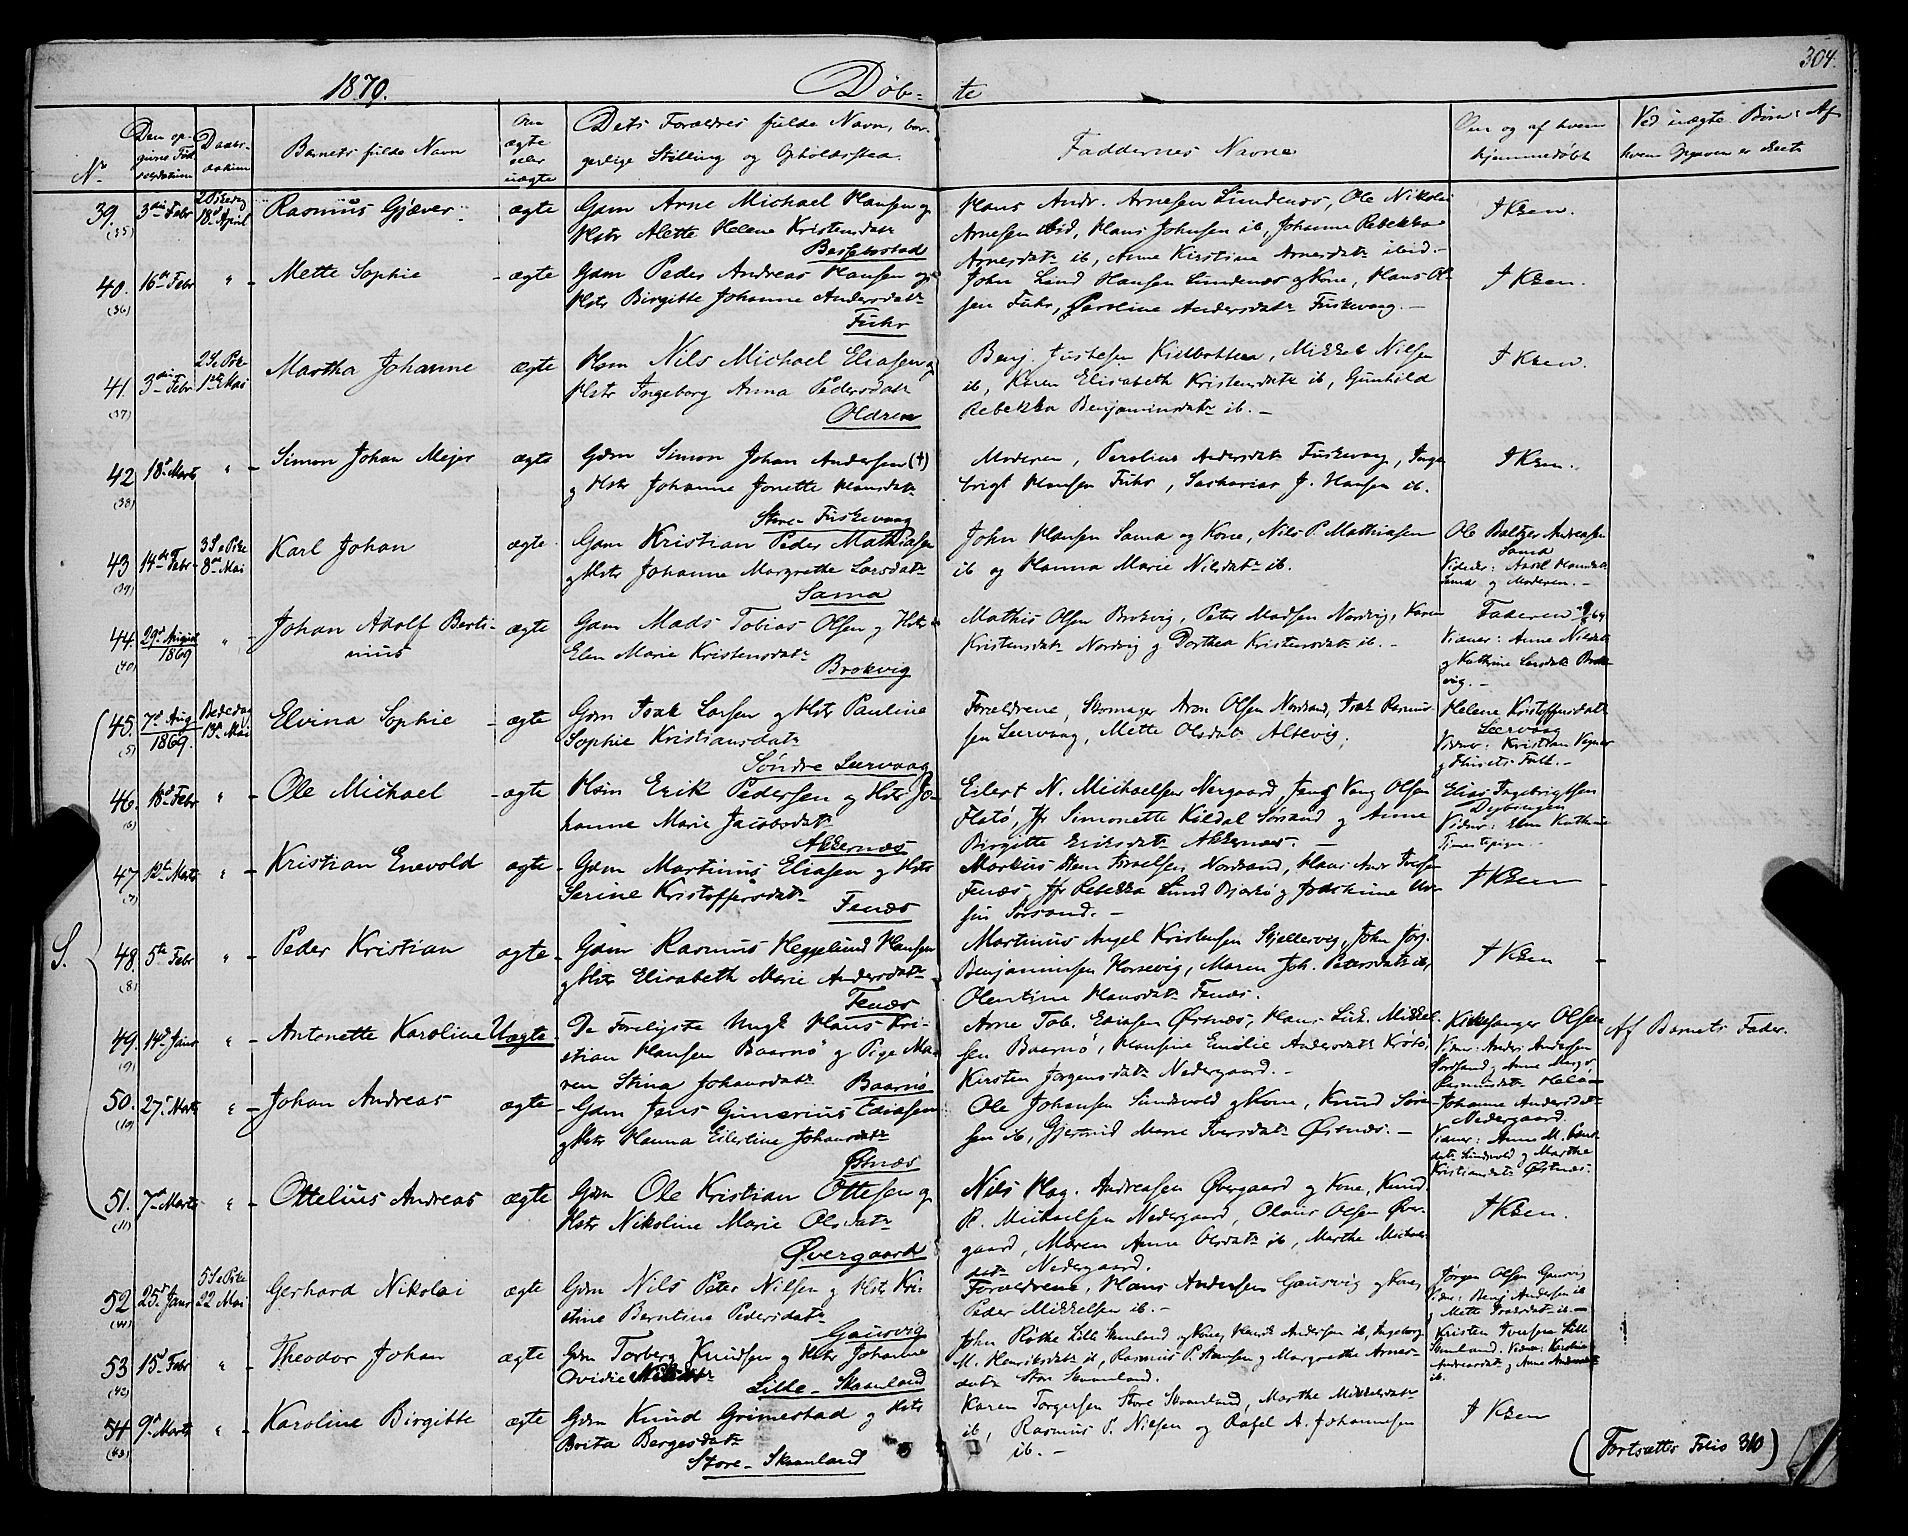 304.
1870. Døb- te
No
Den op-
givne Fød-
selsdatum
Daabs-
datum
Barnets fulde Navn
Om
ægte
eller
uægte
Dets Forældres fulde Navn, bor-
gerlige Stilling og Opholdssted.
Faddernes Navne
Om og af hvem
hjemmedøbt
Ved uægte Børn: Af
hvem Opgaven er skeet
39. (35) 3die Febr 2 Paaskedag 18de April Rasmus Gjæver. ægte Gdm Arne Michael Hansen og
Hstr Alette Helene Kristensdatr
Bessebostad
Hans Andr. Arnesen Lundenæs, Ole Nikolai
Arnesen ibid, Hans Johnsen ib, Johanne Rebekka
Arnesdatr ib, Anne Kirstine Arnesdatr ibid.-
I Ksen.
40. (36) 16de Febr " - Mette Sophie - ægte Gdm Peder Andreas Hansen og
Hstr Birgitte Johanne Andersdatr
Fuhr
John Lind Hansen Lundenæs og Kone, Hans Ol-
sen Fuhr, Caroline Andersdatr Fuskevaag.-
I Ksen.
41. (37) 3die Febr 1ste Mai Martha Johanne ægte Hsm Nils Michael Eliasen og
Hstr Ingeborg Anna Pedersdatr
Oldren
Benj. Justesen Kielbotten, Mikkel Nilsen
ib, Karen Elisabeth Kristensdatr ib, Gunhild
Rebekka Benjaminsdatr ib.-
I Ksen.
42 (38) 18de Marts " - Simon Johan Mejer ægte Gdm Simon Johan Andersen (+)
og Hstr Johanne Jonette Hansdatr
Store- Fuskevaag
Moderen, Andersdatr Fuskevaag, Inge-
brigt Hansen Fuhr, Sacharias J. Hansen ib.
I Ksen.
43 (39) 14de Febr 8de Mai Karl Johan ægte. Gdm Kristian Peder Mathiasen
og Hstr Johanne Margrethe Larsdatr
Sama
John Hansen Sama og Kone, Nils P. Mathiasen
ib og Hanna Marie Nilsdatr ib.
Ole Baltzer Andreasen
Sama
Sama og Moderen.-
44. (40) 29de August 1869 " Johan Adolf Berti-
nius ægte Gdm Mads Tobias Olsen og Hstr
Elen Marie Kristensdatr
Brokvig
Mathis Olsen Brokvig, Peter Madsen Nordvig, Karen
Kristensdatr Nordvig og Dorthea Kristensdatr ib.-
Faderen
Vidner: Anne Nilsdatr
og Kathrine Larsdatr Brok-
vig.-
S.
45. (5) 7de Aug 1869. Bededag 13de Mai Elvina Sophie - ægte Gdm Isak Larsen og Hstr Pauline
Sophie Kristiansdatr
Søndre Leervaag
Forældrene, Skomager Aron Olsen Nordsand, Isak Rasmus-
sen Leervaag, Mette Olsdatr Altevig.
Helene Kristoffersdatr
Leervaag
Vidner: Kristian
og Husets Folk.-
46. (6) 18de Febr " - Ole Michael - ægte Hsm Erik Pedersen og Hstr Jo-
hanne Marie Jacobsdatr
Akkernæs
Eilert N. Michaelsen Nergaard, Jens Vang Olsen
Flatø, Jfr Simonette Kildal Sørsand og Anne
Birgitte Eriksdatr Akkernæs.-
Elias Ingebrigtsen
Dybvugen
Vidner: Elen Kathrine
47 (7) 12te Marts " - Kristian Enevold ægte - Gdm Martinus Eliasen og Hstr
Serine Kristoffersdatr
Fenæs
Markus Israelsen Nordsand, Hans Andr Iversen
Fenæs, Jfr Rebekka Lind Bjarkø og Joakime
Sørsand.-
I Ksen
48. (8) 5te Febr " - Peder Kristian ægte - Gdm Rasmus Heggelund Hansen
og Hstr Elisabeth Marie Andersdatr
Fenæs
Martinus Angel Kristensen Skjellesvig, John Jørg.
Benjaminsen Horsevig, Maren Joh. Petersdatr ib,
Olentine Hansdatr Fenæs.
I Ksen
49. (9) 14de Janr " - Antonette Karoline Uægte - De Forlovede Ungk. Hans Kri-
stian Hansen Baarnø og Pige Ma-
ren Stina Johansdatr Baarnø
Arne Tob. Ediasen Ørsnæs, Hans Lik. Mikkel-
sen Baarnø, Hansine Emilie Andersdatr Krøtø,
Kirsten Jørgensdatr Nedergaard.-
Kirkesanger Olsen
Vidner: Anders Andersen
Nordsand og Anne Marg.
Rasmusdatr
Af Barnets Fader.
50. (10) 27de Marts " - Johan Andreas ægte - Gdm Jens Gunerius Ediasen
og Hstr Hanna Eilertine Johansdatr
Østnæs
Ole Johansen Sundsvold og Kone, Knud Søren-
sen ib, Gjertrud Marie Iversdatr Ørsnæs.-
Johanne Andersdatr
Nedergaard
Vidner: Anne M.
datr Sundsvold og Marthe
Kristiansdatr Østnæs.
51. (11) 7de Marts " Ottelius Andreas ægte Gdm Ole Kristian Ottesen og
Hstr Nikoline Marie Olsdatr
Øvergaard
Nils Hag. Andreasen Øvergaard og Kone, Knud
R. Michaelsen Nedergaard, Olaus Olsen Øver-
gaard, Maren Anne Olsdatr ib, Marthe Michaels-
datr Nedergaard.
I Ksen.
52 (41) 25de Janr 22 Mai Gerhard Nikolai ægte Gdm Nils Peter Nilsen og Hstr Kri-
stine Berntine Pedersdatr
Gausvig
Forældrene, Hans Andersen Gausvig og Kone,
Peder Mikkelsen ib.-
Jørgen Olsen Gausvig
Vidner: Benj Andersen ib
og Mette Isaksdatr ib.-
53 (42) 15de Febr " - Theodor Johan ægte Gdm Torberg Knudsen og Hstr Johanne
Ovidie Nilsdatr
Lille- Skaanland
John Røthe Lille Skaanland og Kone, Henrik Andersen ib, Ingeborg
M. Henriksdatr ib, Rasmus P. Hansen og Margrethe Arnes-
datr Store Skaanland.
Kristen Iversen Lille
Skaanland. Vidner: Karoline
Andreasdatr og Anne Andreasdatr
ib.
54 (43) 9de Marts " - Karoline Birgitte ægte Gdm Knud Grimestad og Hstr
Brita Bergesdatr
Store- Skaanland
Karen Torgersen Store Skaanland, Marthe Mikkelsdatr
ib, Rasmus P. Nilsen og Rafel A. Johannesen
ib.-
I Ksen
(Fortsættes Folio 310)